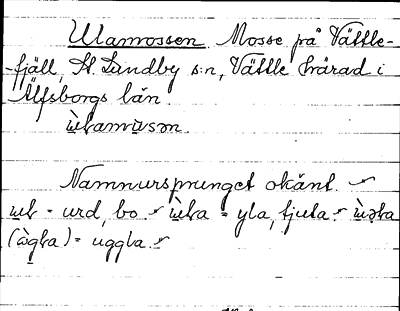 Ulamossen. Mosse på Vättle-
-fjäll, St. Lundby s:n, Vättle härad i
Älfsborgs län.

Namnursprunget okänt.
= urd, bo. = yla, tjuta
= uggla.